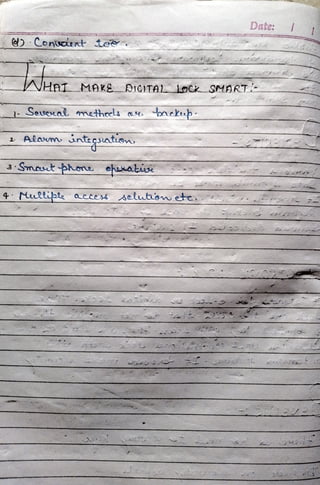 Date: / /
(d) Convient too.
WHAT MAKE DIGITAL LOCK SMART:-
1. Several methods as backup.
2 Alarm integration
3. Smart phone operative
4. Multiple access solution etc.